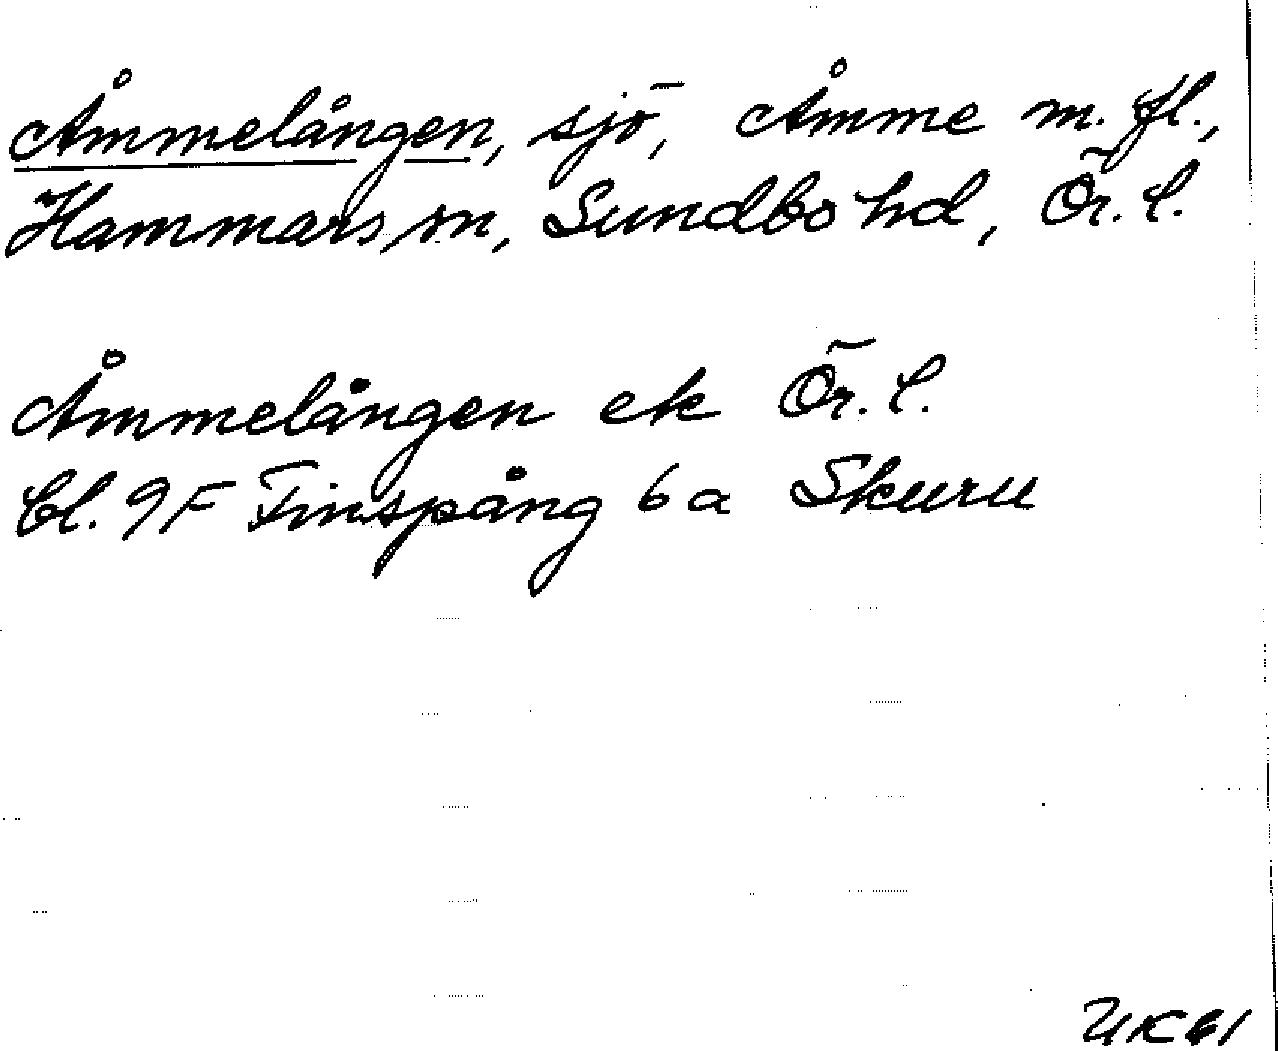 Åmmelången, sjö, Åmme m. fl.,
Hammars sn, Sundbo hd, Ör. l.
Åmmelången ek Ör. l.
bl. 9F Finspång 6a Skuru
UK61